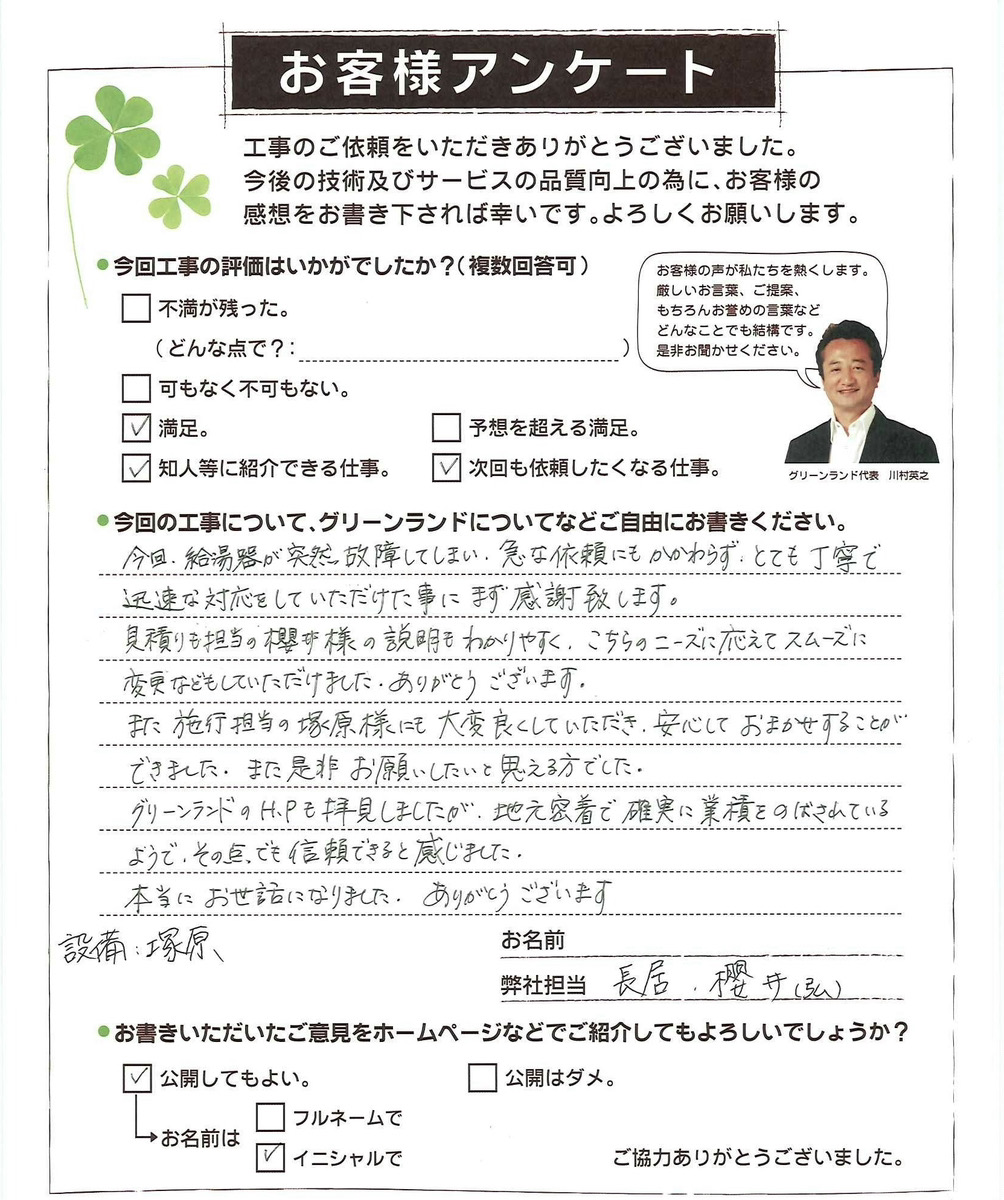 お客様アンケート
工事のご依頼をいただきありがとうございました。
今後の技術及びサービスの品質向上の為に、お客様の
感想をお書き下されば幸いです。よろしくお願いします。
●今回工事の評価はいかがでしたか？（複数回答可）
□ 不満が残った。
（どんな点で？：　　　　　）
□ 可もなく不可もない。
☑ 満足。　□ 予想を超える満足。
☑ 知人等に紹介できる仕事。　☑ 次回も依頼したくなる仕事。
お客様の声が私たちを熱くします。
厳しいお言葉、ご提案、
もちろんお誉めの言葉など
どんなことでも結構です。
是非お聞かせください。
グリーンランド代表　川村英之
●今回の工事について、グリーンランドについてなどご自由にお書きください。
今回、給湯器が突然故障してしまい、急な依頼にもかかわらず、とても丁寧で
迅速な対応をしていただけた事にまず感謝致します。
見積りも担当の櫻井様の説明もわかりやすく、こちらのニーズに応えてスムーズに
変更などもしていただけました。ありがとうございます。
また施行担当の塚原様にも大変良くしていただき、安心しておまかせすることが
できました。また是非お願いしたいと思える方でした。
グリーンランドのH.Pも拝見しましたが、地元密着で確実に業積をのばされている
ようで、その点、でも信頼できると感じました。
本当にお世話になりました。ありがとうございます
設備：塚原、
お名前
弊社担当　長居、櫻井（弘）
●お書きいただいたご意見をホームページなどでご紹介してもよろしいでしょうか？
☑ 公開してもよい。　□ 公開はダメ。
お名前は
□ フルネームで
☑ イニシャルで
ご協力ありがとうございました。